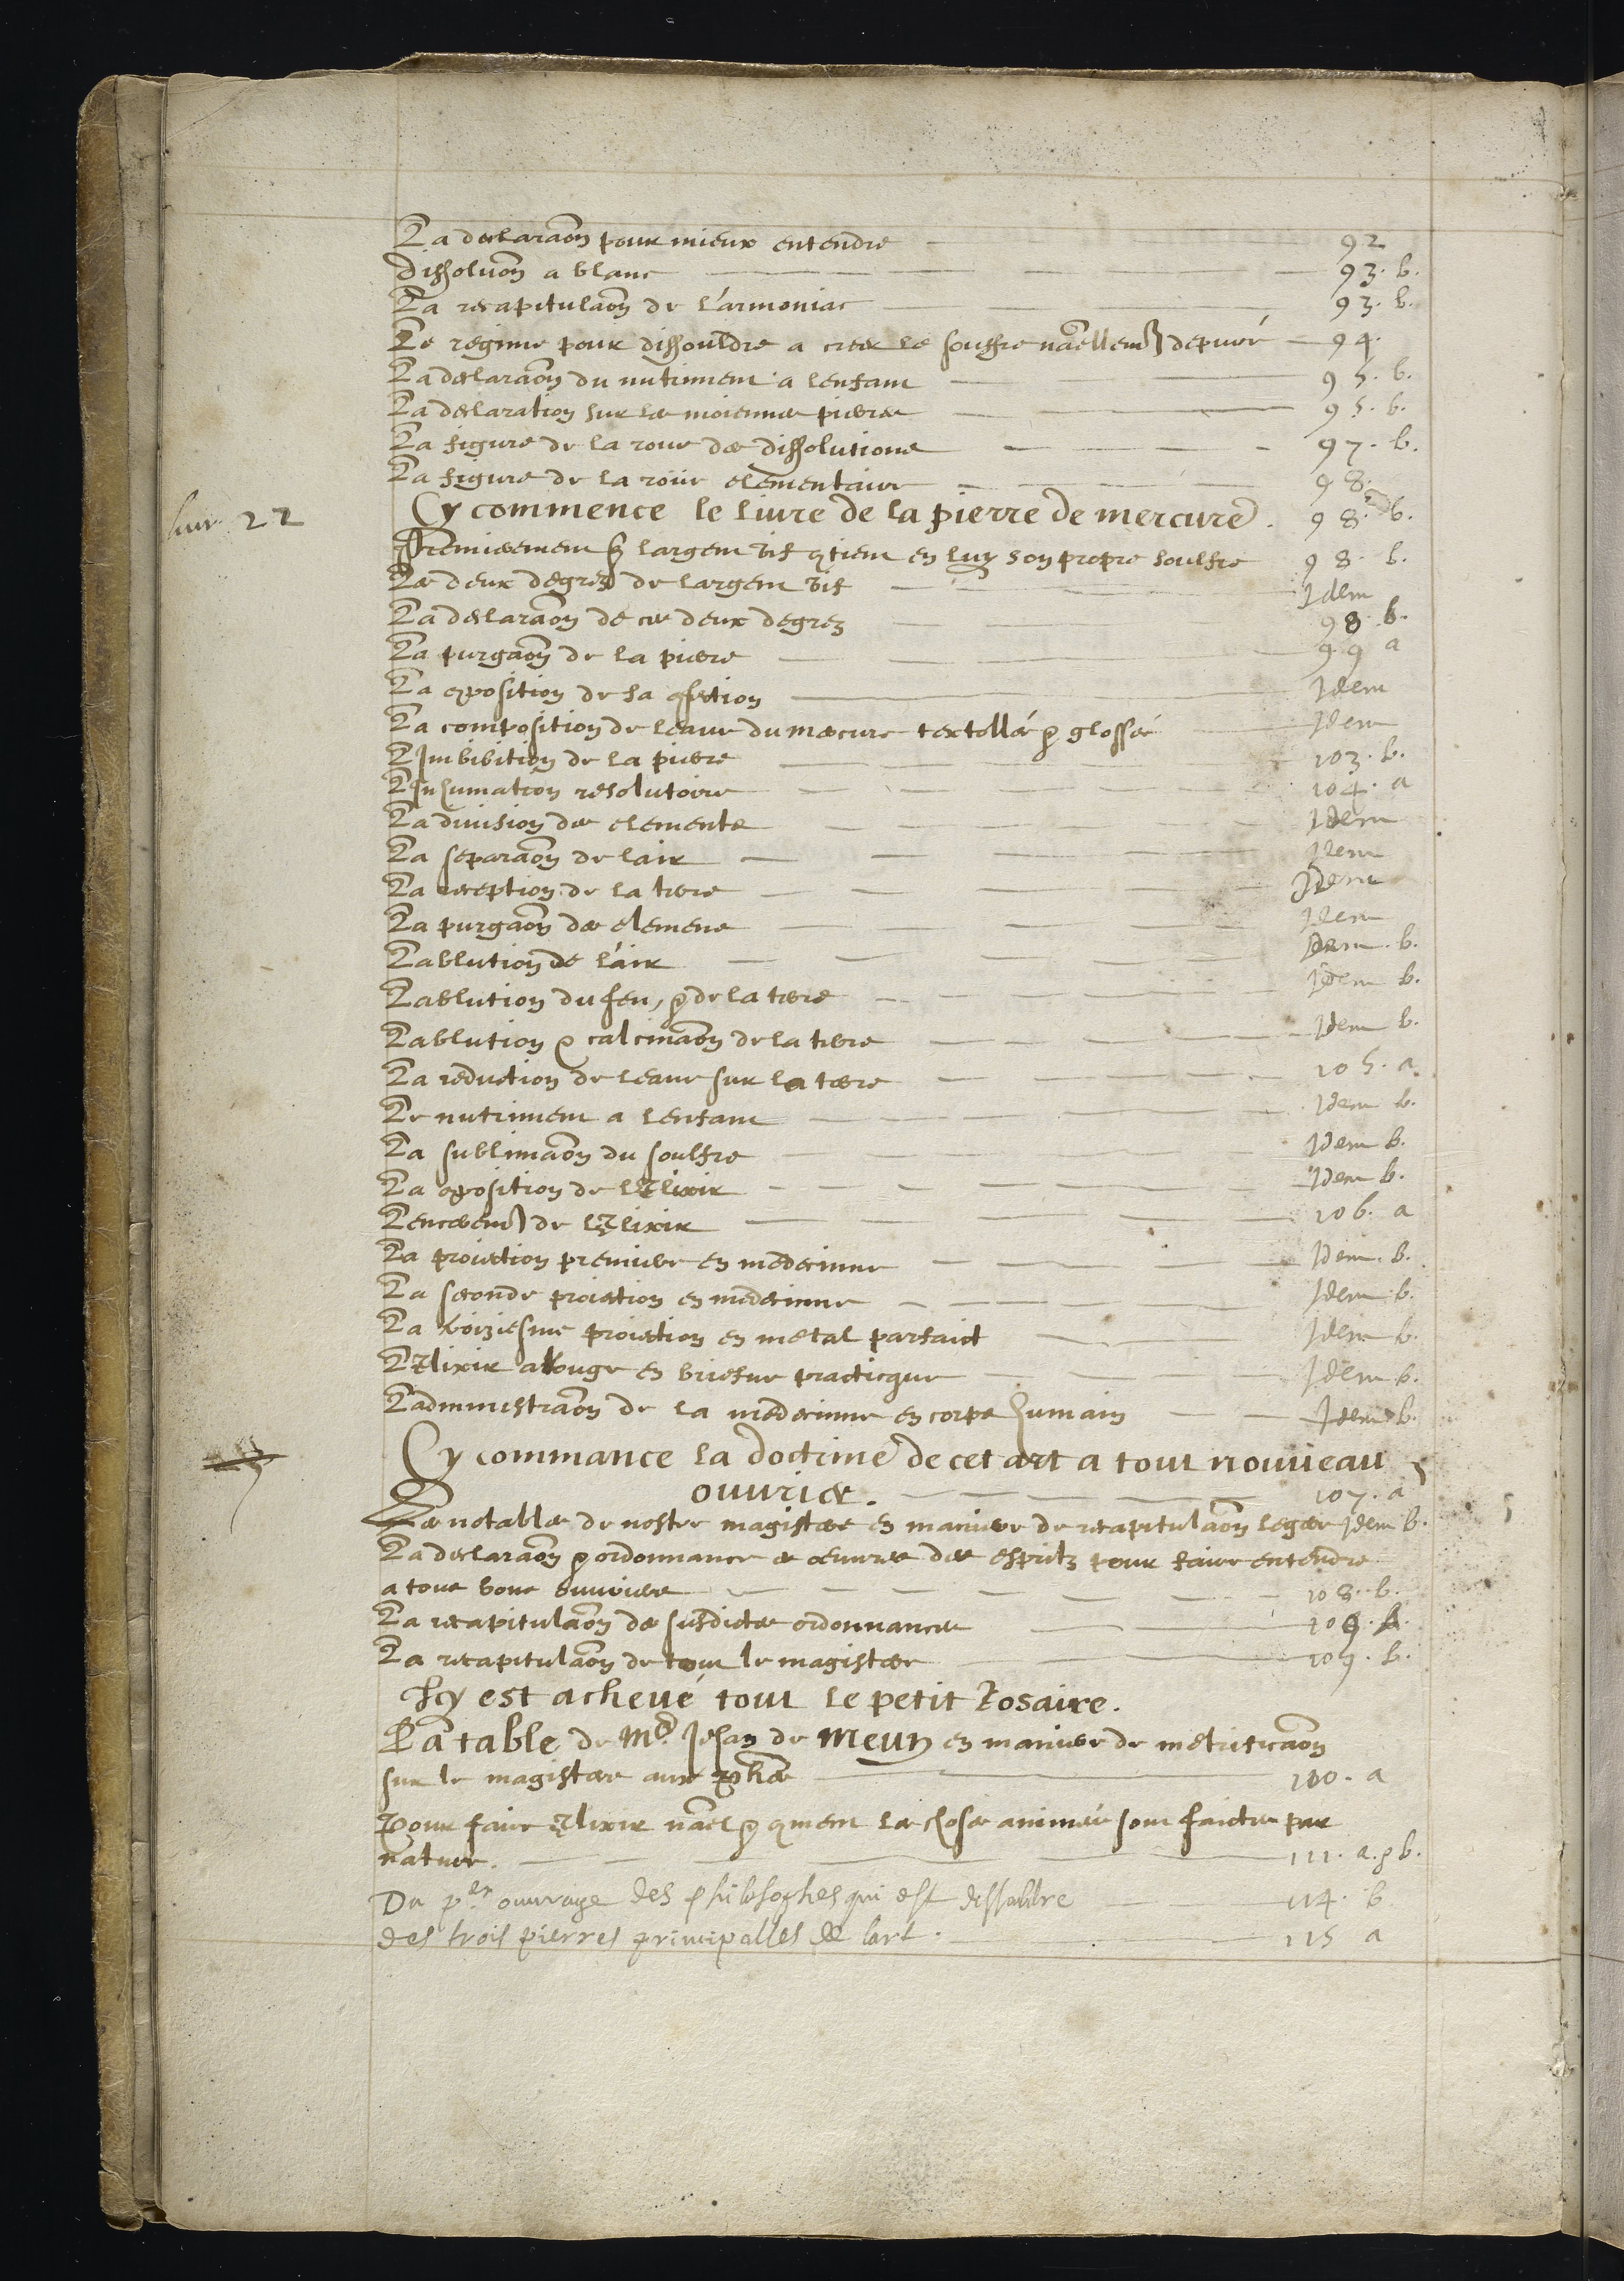 La declaraon pour mieux entendre 92
dissoluon a blanc 93. b.
La recapitulaon de l'armoniac 93. b.
Le regime pour dissouldre a creer le souffre naellemt depuré 94.
La declaraon du nutriment a lenfant 95. b.
La declaration sur les moiennes pierres 95. b.
La figure de la roue des dissolutions 97. b.
La figure de la roüe elementaire 98.
livre 22 Cy commence le liure de la pierre de mercure. 98. b.
Premierement largent vif qtient en luy son propre soulfre 98. b.
Les deux degrez de largent vif Idem
La declaraon de ces deux degrez 98. b.
La purgaon de la pierre 99 a
La oposition de sa Idem
La composition de leaue du mercure textellé & glossé Idem
L'Imbibition de la pierre 103. b.
L'Inhumation resolutoire 104. a
La diuision des elements Idem
La separaon de lair Idem
La reception de la terre Idem
La purgaon des elemens Idem
Lablution de lair Idem. b.
Lablution du feu, & de la terre Idem b.
Lablution & calcinaon de la terre Idem b.
La reduction de leaue sur la terre 105. a.
Le nutriment a lenfant Idem b.
La sublimaon du soulfre Idem b.
La oposition de lElixir Idem b.
Lencerement de lElixir 106. a
La proiection premiere en medecinne Idem. b.
La seconde proiection en medecinne Idem b.
La troiziesme proiection en metal parfaict Idem b.
LElixir a Rouge en briefue practicque Idem b.
Ladministraon de la medecinne en corps humain Idem b.
Cy commance la doctrine de cet art a tout nouueau
ouurier. 107. a
Les notables de nostre magistere en maniere de recapitulaon legere Idem b.
La declaraon & ordonnance es oeuures des espritz pour faire entendre
a tous bons ouuriers 108. b.
La recapitulaon des susdictes ordonnances 109. b.
La recapitulaon de tout le magistere 109. b.
Icy est acheué tout le petit Rosaire.
La table de Me. Jehan de Meun en maniere de metrificaon
sur le magistere aux 110. a
Pour faire Elixir nael & qment les choses animées sont faictes par
nature. 111. a. & b.
Du per ouurage des philosophes qui est dissouldre 114. b
des trois pierres principalles de lart. 115 a